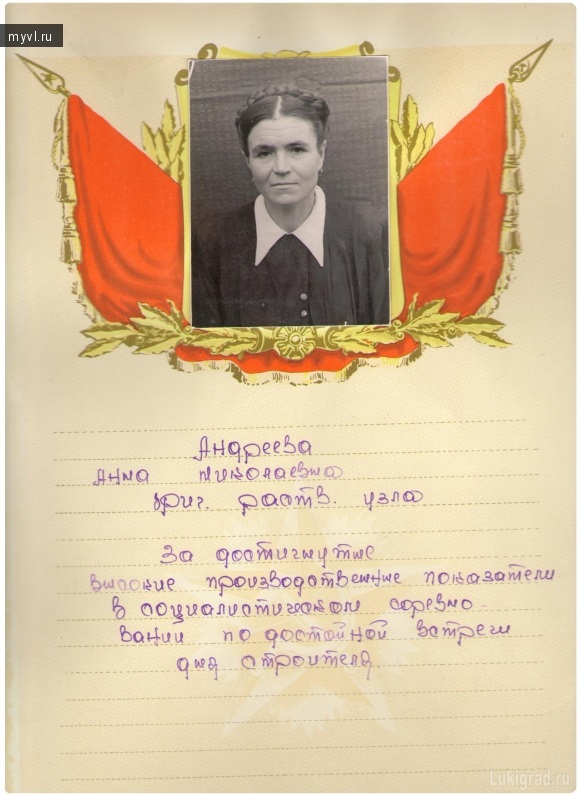 myvl.ru
Андреева
Анна Николаевна
бриг. раств. узла
За достигнутые
высокие производственные показатели
в социалистическом соревно-
вании по достойной встречи
дня строителя
Lukigrad.ru